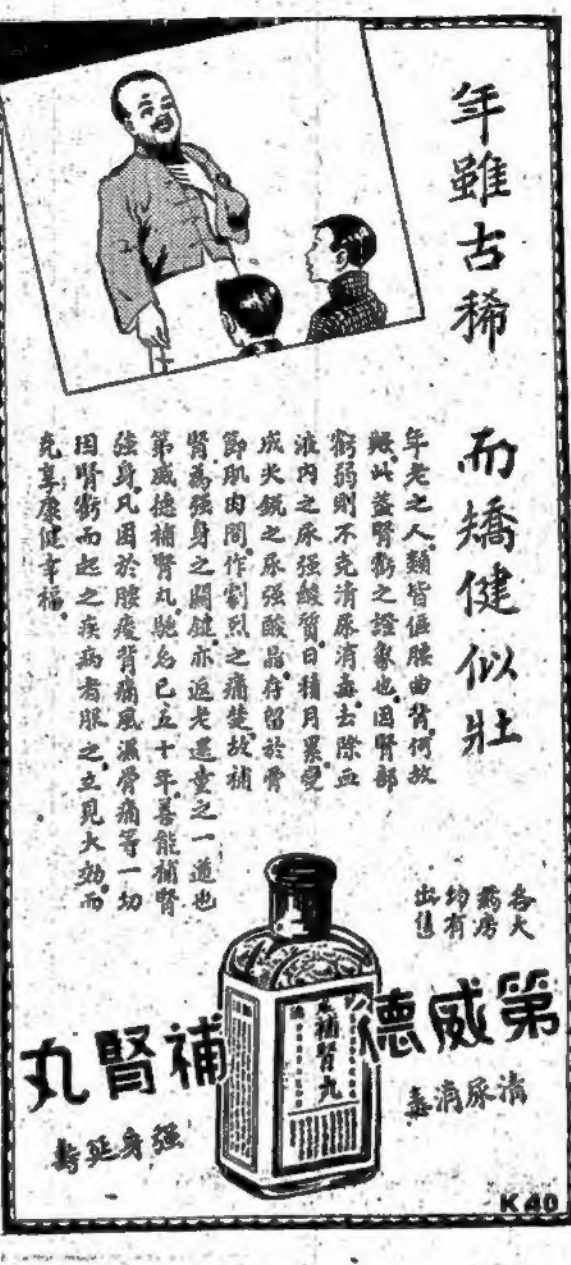 年雖古稀　而矯健似壯
年老之人類皆傴腰曲背何故
歟此蓋腎虧之證象也因腎部
虧弱則不克清尿消毒去除血
液內之尿强酸質日積月累變
成尖銳之尿强酸晶存留於骨
節肌肉間作劇烈之痛楚故補
腎為强身之關鍵亦返老還童之一道也
第威德補腎丸馳名已五十年善能補腎
强身凡困於腰痠背痛風濕骨痛等一切
因腎虧而起之疾病者服之立見大効而
克享康健幸福
各大
藥房
均有
出售
第威德
補腎丸
清尿消毒
强身延壽
補腎丸
K40